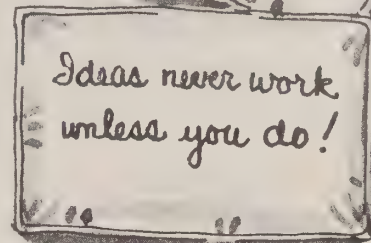 Ideas never work
unless you do!